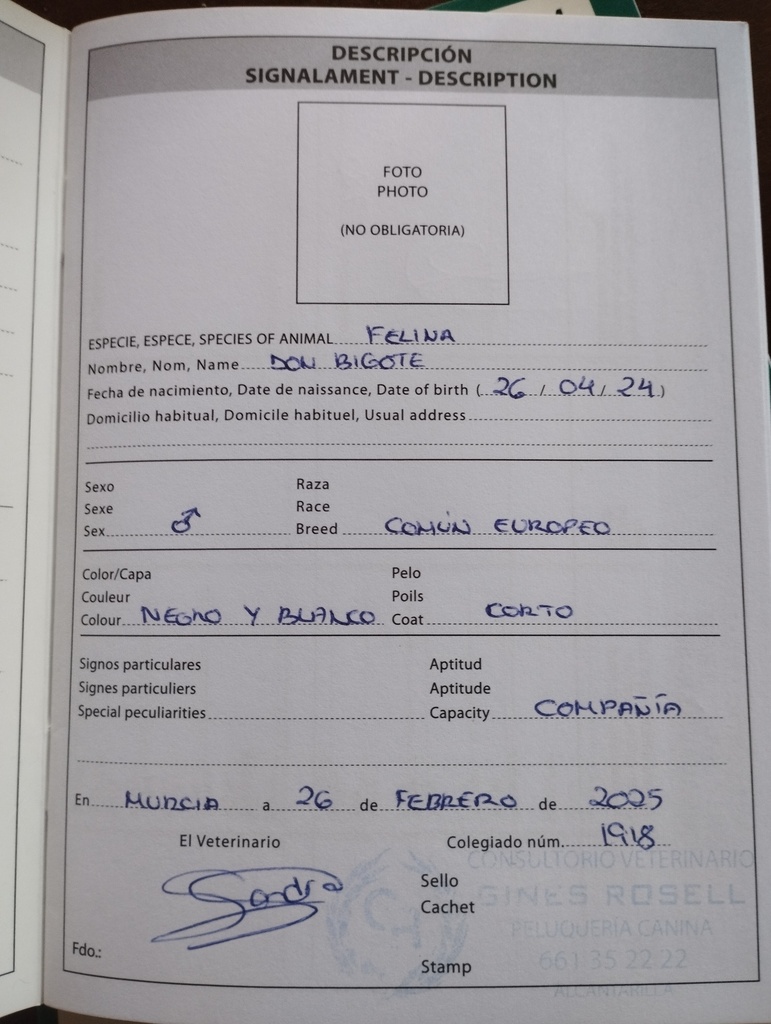 DESCRIPCIÓN
SIGNALAMENT - DESCRIPTION
FOTO
PHOTO
(NO OBLIGATORIA)
ESPECIE, ESPECE, SPECIES OF ANIMAL FELINA
Nombre, Nom, Name DON BIGOTE
Fecha de nacimiento, Date de naissance, Date of birth ( 26 / 04 / 24 )
Domicilio habitual, Domicile habituel, Usual address
Sexo Raza
Sexe Race
Sex ♂ Breed COMÚN EUROPEO
Color/Capa Pelo
Couleur Poils
Colour NEGRO Y BLANCO Coat CORTO
Signos particulares Aptitud
Signes particuliers Aptitude
Special peculiarities Capacity COMPAÑÍA
En MURCIA a 26 de FEBRERO de 2025
El Veterinario Colegiado núm. 1918
CONSULTORIO VETERINARIO
Sello
GINES ROSELL
Sandra
Cachet
PELUQUERÍA CANINA
Fdo.:
661 35 22 22
Stamp
ALCANTARILLA